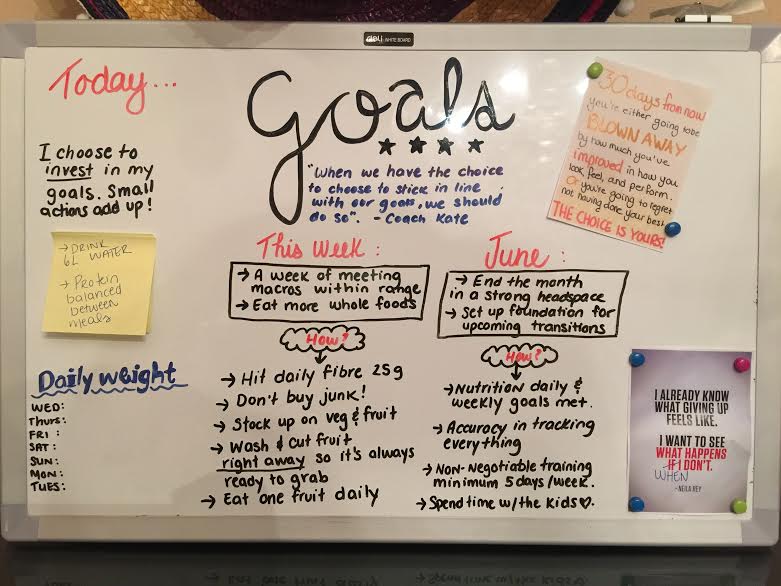 deli WHITE BOARD
Today...
I choose to
invest in my
goals. Small
actions add up!
→ DRINK
6L WATER
→ Protein
balanced
between
meals
Daily weight
WED:
Thurs:
FRI :
SAT:
SUN:
MON:
TUES:
Goals
"When we have the choice
to choose to stick in line
with our goals, we should
do so". - Coach Kate
This Week :
→ A week of meeting
macros within range
→ Eat more whole foods
How?
→ Hit daily fibre 25g
→ Don't buy junk!
→ Stock up on veg & fruit
→ Wash & cut fruit
right away so it's always
ready to grab
→ Eat one fruit daily
June :
→ End the month
in a strong headspace
→ Set up foundation for
upcoming transitions
How?
→ Nutrition daily &
weekly goals met.
→ Accuracy in tracking
everything
→ Non-Negotiable training
minimum 5 days/week.
→ Spend time w/the kids♡.
30 days from now
you're either going to be
BLOWN AWAY
by how much you've
improved in how you
look, feel, and perform.
Or you're going to regret
not having done your best
THE CHOICE IS YOURS!
I ALREADY KNOW
WHAT GIVING UP
FEELS LIKE.
I WANT TO SEE
WHAT HAPPENS
IF I DON'T.
WHEN
- NEILA REY